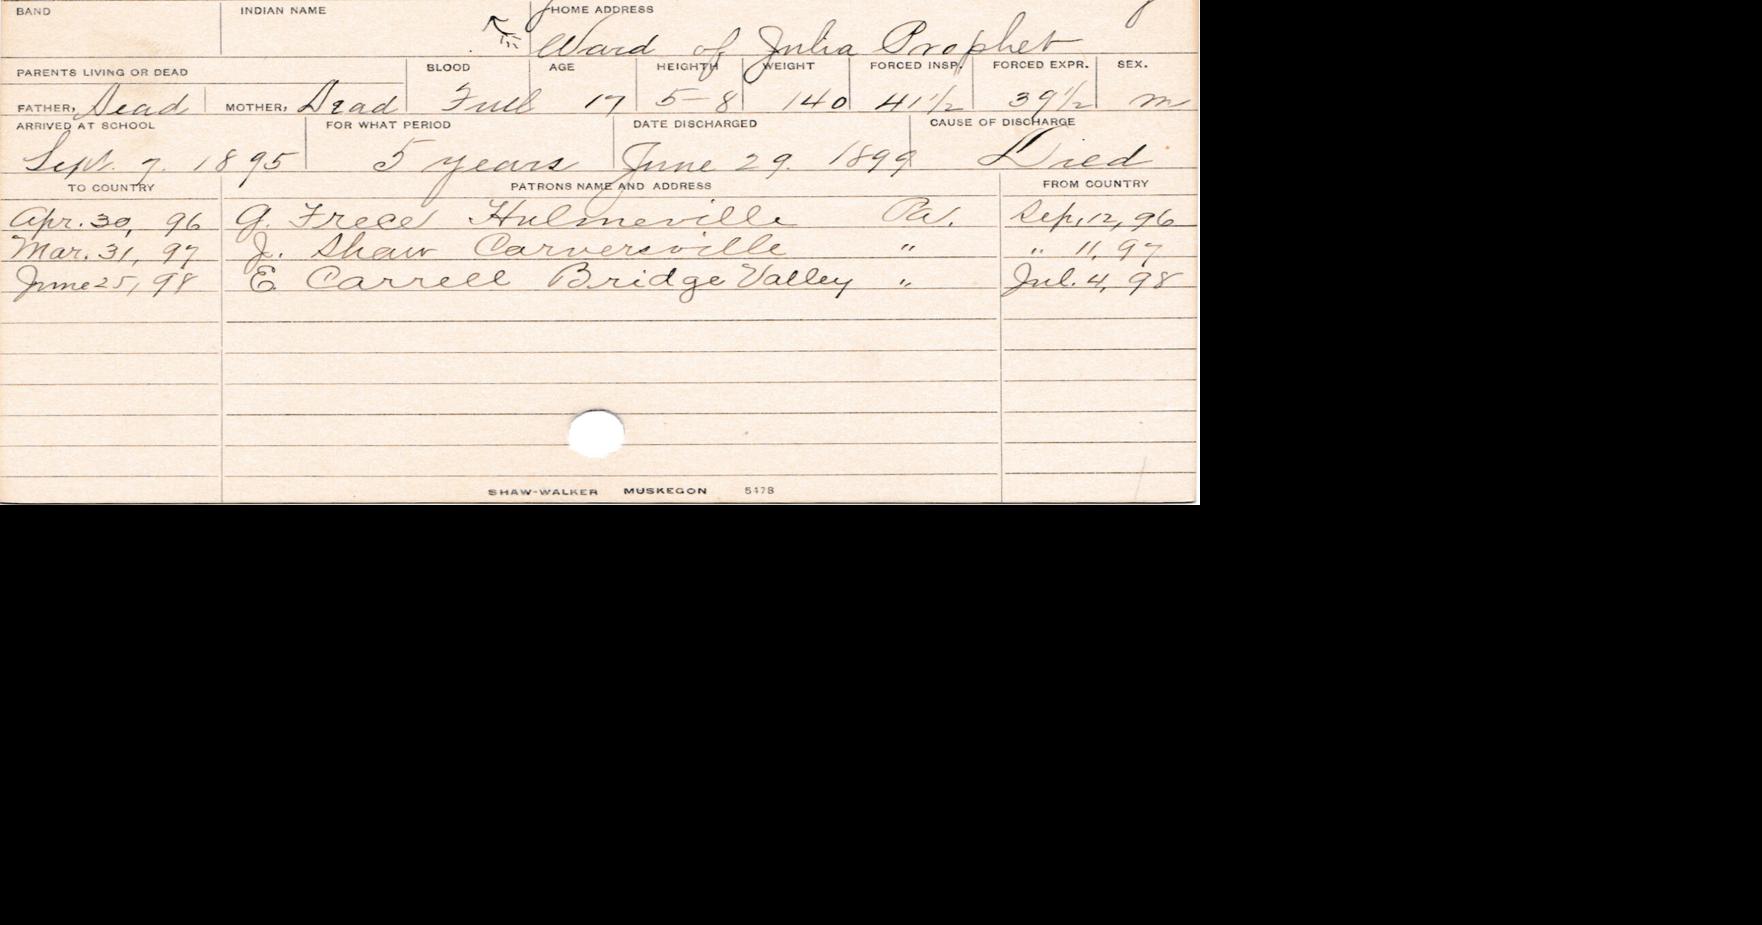 BAND INDIAN NAME HOME ADDRESS
Ward of Julia Prophet
PARENTS LIVING OR DEAD BLOOD AGE HEIGHTH WEIGHT FORCED INSP. FORCED EXPR. SEX.
FATHER, Dead MOTHER, Dead Full 17 5-8 140 41 1/2 39 1/2 m
ARRIVED AT SCHOOL FOR WHAT PERIOD DATE DISCHARGED CAUSE OF DISCHARGE
Sept. 7. 1895 5 years June 29. 1899 Died
TO COUNTRY PATRONS NAME AND ADDRESS FROM COUNTRY
Apr. 30, 96 G. Frece Hulmeville Pa. Sep. 12, 96
Mar. 31, 97 J. Shaw Carversville " " 11, 97
June 25, 98 E. Carrell Bridge Valley " Jul. 4, 98
SHAW-WALKER MUSKEGON 5178